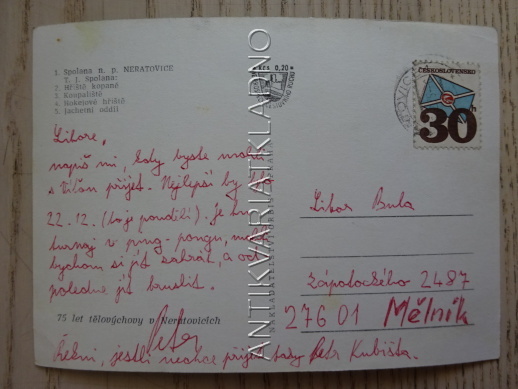 1. Spolana n. p. NERATOVICE
T. J. Spolana:
2. Hřiště kopané
3. Koupaliště
4. Hokejové hřiště
5. Jachetní oddíl
Kčs 0,20
ČESKOSLOVENSKO
30h
ANTIKVARIATKLADNO
Libore,
napiš mi, kdy byste mohli
s Víťou přijet. Nejlepší by bylo
22. 12. (to je pondělí). Je tu
turnaj v ping-pongu, mohli
bychom si jít zahrát, a od-
poledne jít bruslit.
Petr
75 let tělovýchovy v Neratovicích
Řekni, jestli nechce přijet taky Petr Kubiška.
Libor Bula
Zápotockého 2487
276 01 Mělník